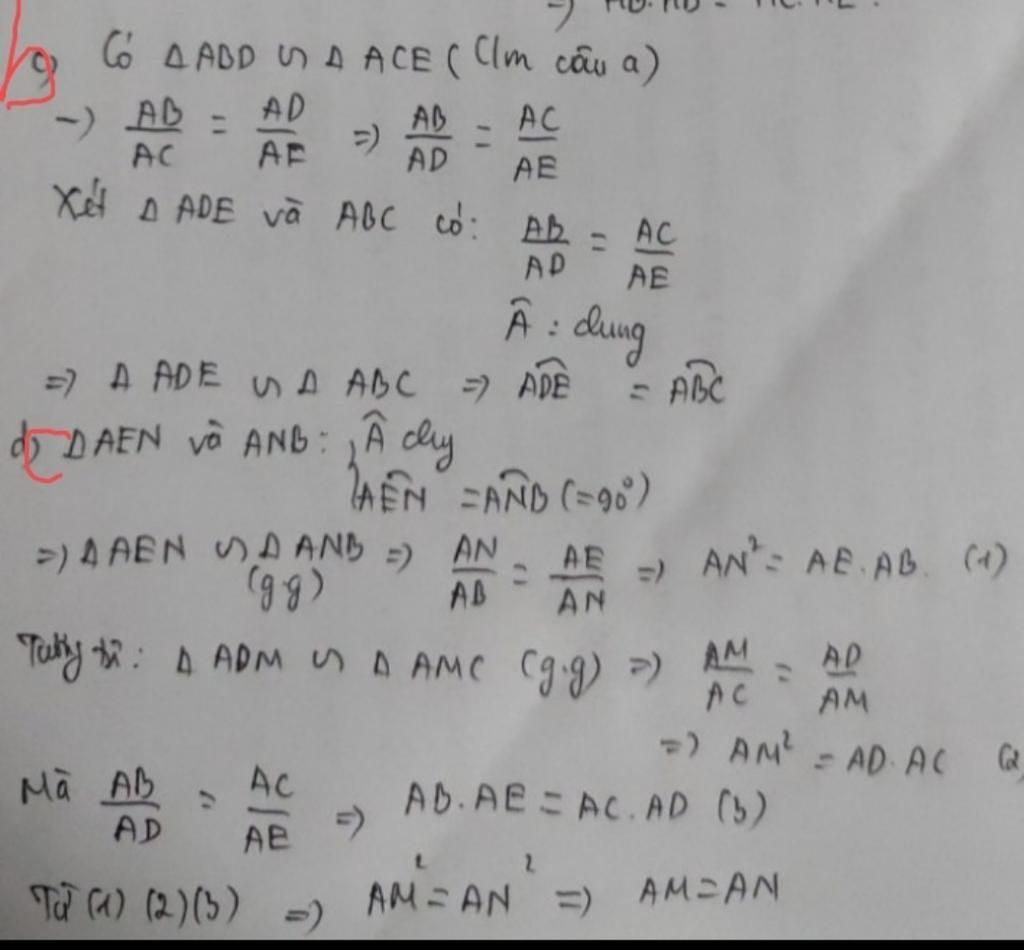 b) Có Δ ABD ∽ Δ ACE (C/m câu a)
→) AB/AC = AD/AE => AB/AD = AC/AE
Xét Δ ADE và ABC có: AB/AD = AC/AE
Â : chung
=> Δ ADE ∽ Δ ABC => ADE = ABC
c) Δ AEN và ANB: Â chg
AEN = ANB (=90°)
=> Δ AEN ∽ Δ ANB => AN/AB = AE/AN => AN² = AE.AB. (1)
(g.g)
Tương tự: Δ ADM ∽ Δ AMC (g.g) => AM/AC = AD/AM
=> AM² = AD.AC (2
Mà AB/AD = AC/AE => AB.AE = AC.AD (3)
Từ (1) (2) (3) => AM² = AN² => AM = AN